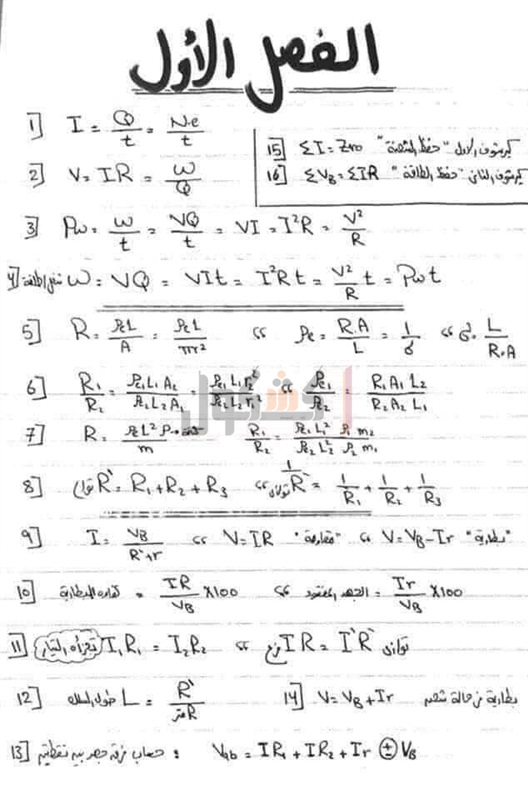 الفصل الأول
1] I = Q/t = N.e/t
15] ΣI = Zero "حفظ الشحنة" كيرشوف الاول
2] V = IR = W/Q
16] ΣVB = ΣIR "حفظ الطاقة" كيرشوف الثاني
3] Pw = W/t = VQ/t = VI = I²R = V²/R
4] شغل, طاقة W = VQ = VIt = I²Rt = V²/R t = Pw t
5] R = ρe L/A = ρe L/πr² ،، ρe = R.A/L = 1/σ ،، σ = L/R.A
6] R1/R2 = ρe1 L1 A2/ρe2 L2 A1 = ρe1 L1 r2²/ρe2 L2 r1² ،، ρe1/ρe2 = R1 A1 L2/R2 A2 L1
7] R = ρe L² ρ/m → كثافة R1/R2 = ρe1 L1² ρ1 m2/ρe2 L2² ρ2 m1
8] توالي R` = R1 + R2 + R3 ،، توازي 1/R` = 1/R1 + 1/R2 + 1/R3
9] I = VB/R`+r ،، V = IR "مقاومة" ،، V = VB - Ir "بطارية"
10] كفاءه البطارية = IR/VB × 100 ،، الجهد المفقود = Ir/VB × 100
11] تجزأه التيار I1R1 = I2R2 ،، فرع IR = I`R` توازى
12] طول السلك L = R`/R متر
14] V = VB + Ir بطارية في حالة شحن
13] حساب فرق جهد بين نقطتين : Vab = IR1 + IR2 + Ir ± VB